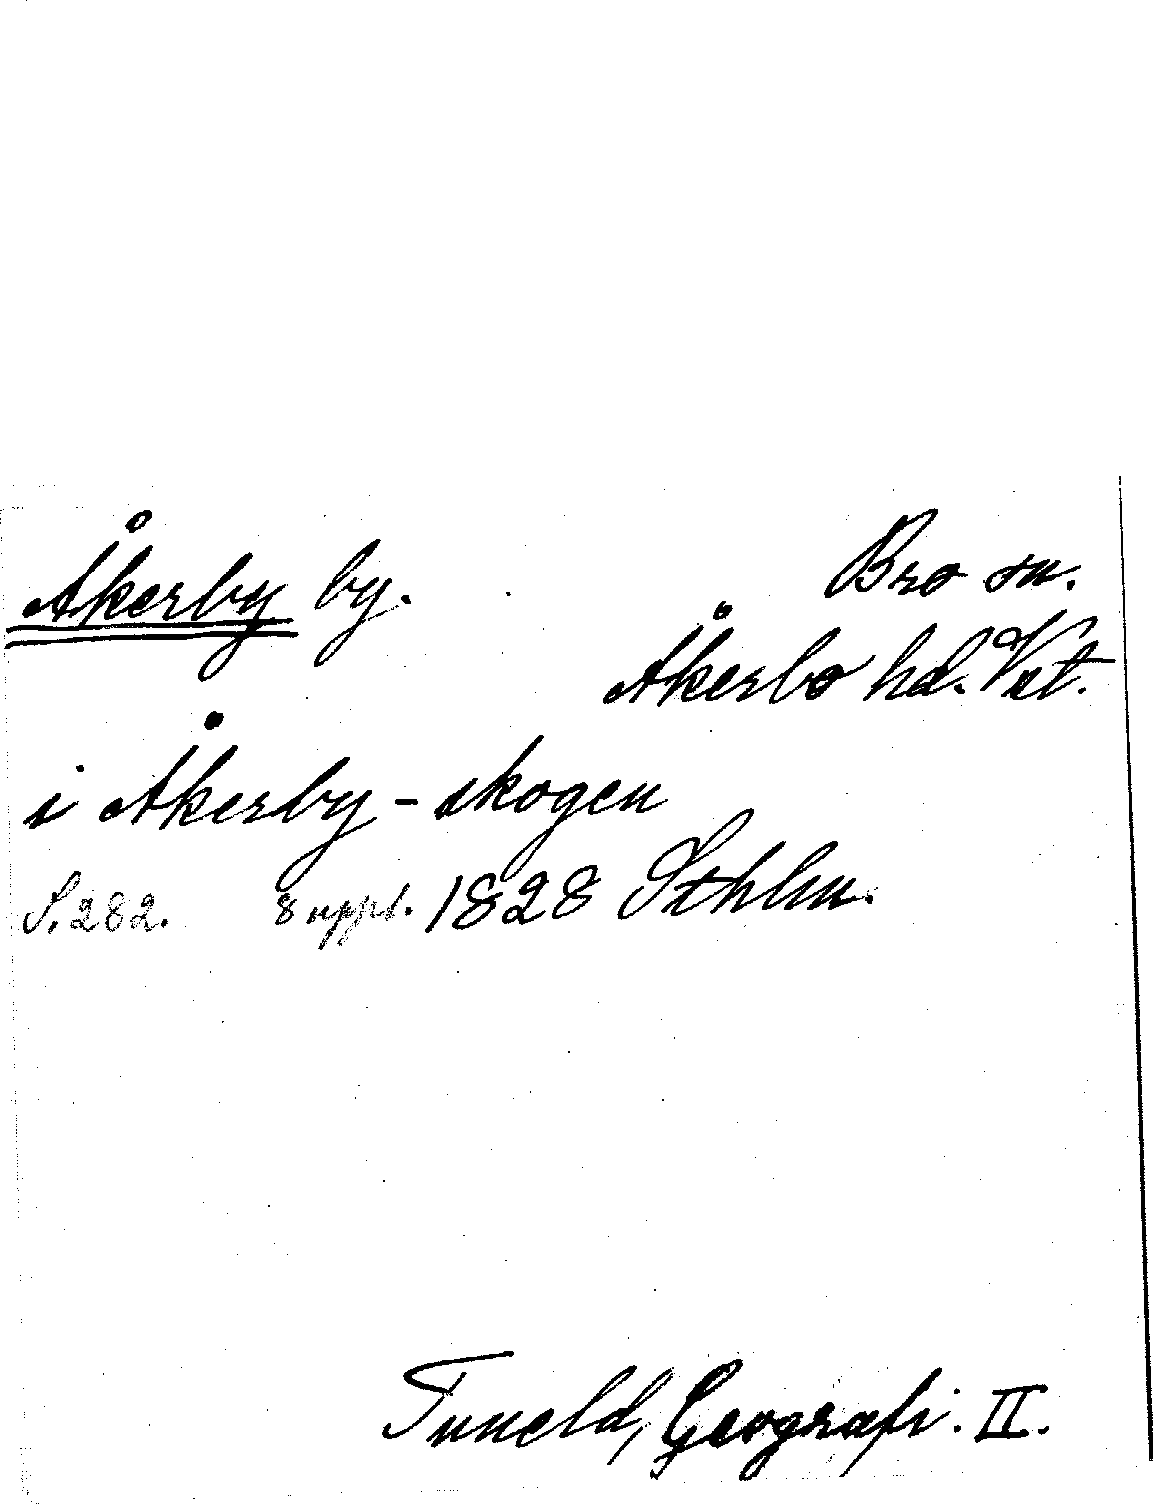 Åkerby by.
Bro sn.
Åkerbo hd. Vst.
i Åkerby-skogen
S. 282. 8 uppl. 1828 Sthlm.
Tuneld, Geografi. II.